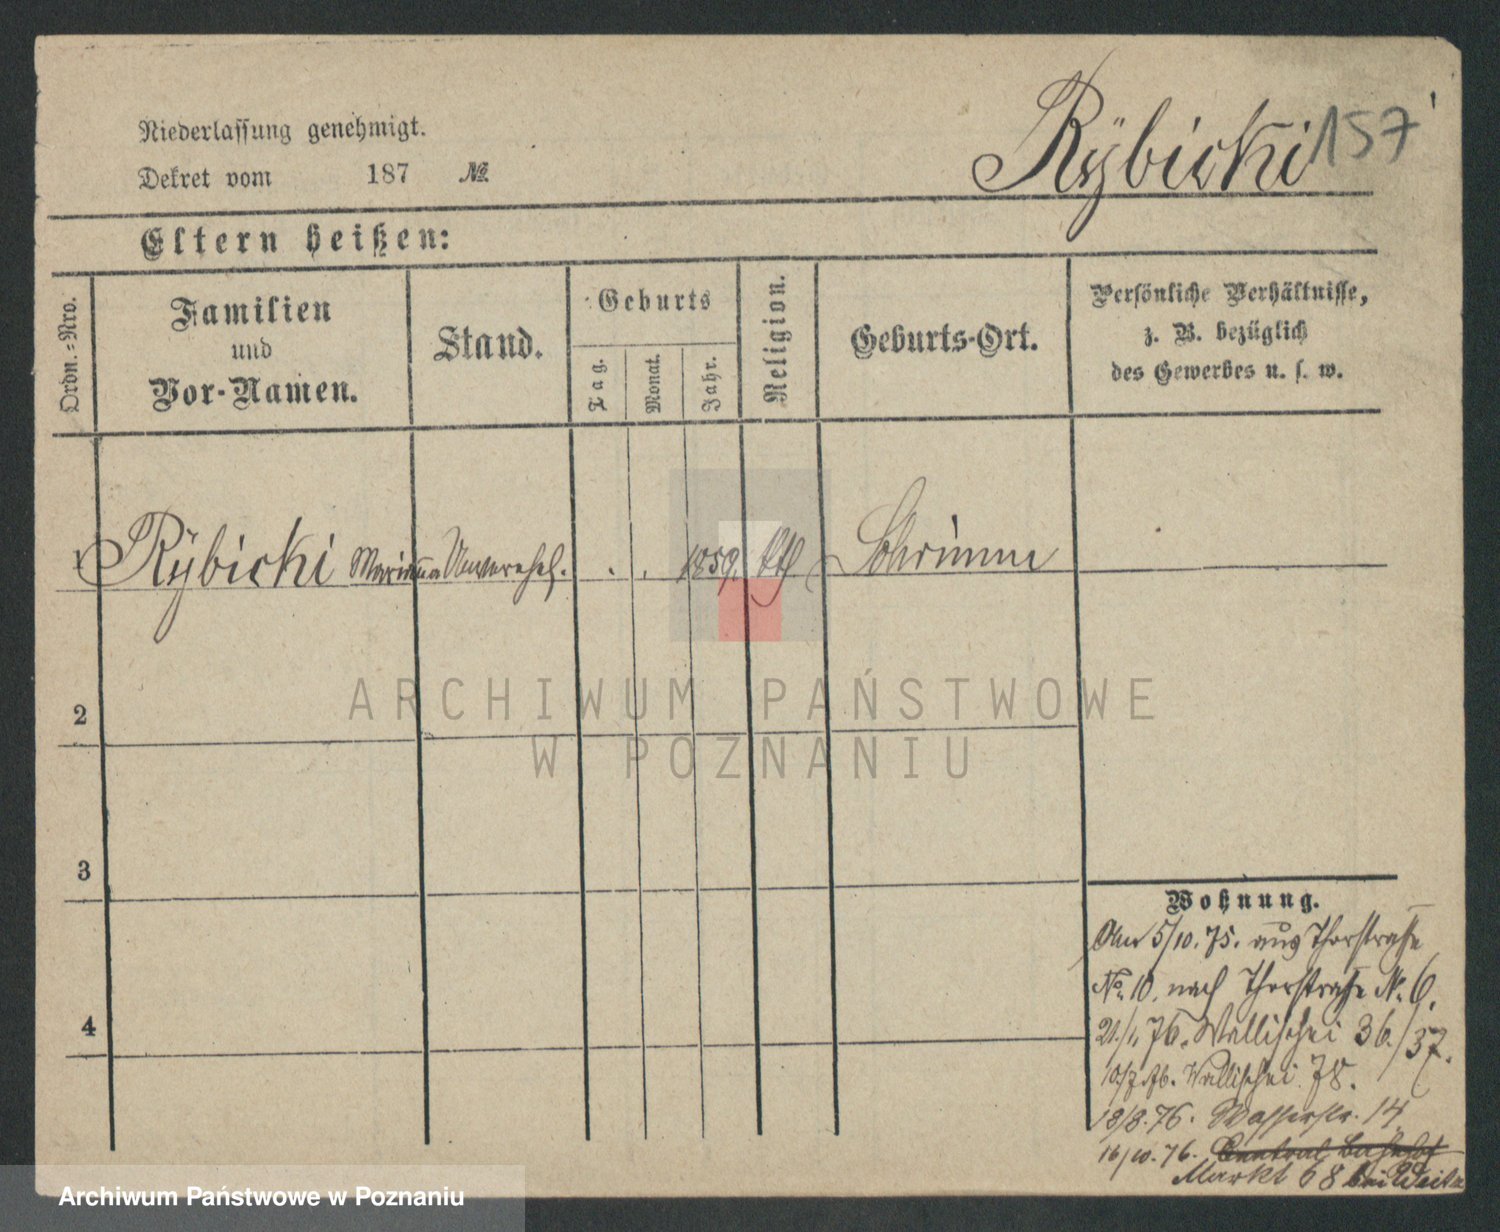 Niederlassung genehmigt.
Dekret vom 187 №
Rÿbicki 157
Eltern heißen:
Ordn.=Nro.
Familien
und
Vor-Namen.
Stand.
Geburts
Tag.
Monat.
Jahr.
Religion.
Geburts-Ort.
Persönliche Verhältnisse,
z. B. bezüglich
des Gewerbes u. s. w.
1 Rÿbicki Marianna Unverehel. . . 1859. kth Schrimm
2
3
4
Wohnung.
Am 5/10. 75. aus Thorstraße
No. 10. nach Thorstraße No. 6.
21/1. 76. Wallischei 36./37.
10/7. 76. Wallischei 78.
18/8. 76. Wasserstr. 14.
16/10. 76. Central Bahnhof
Markt 68 bei
ARCHIWUM PAŃSTWOWE
W POZNANIU
Archiwum Państwowe w Poznaniu